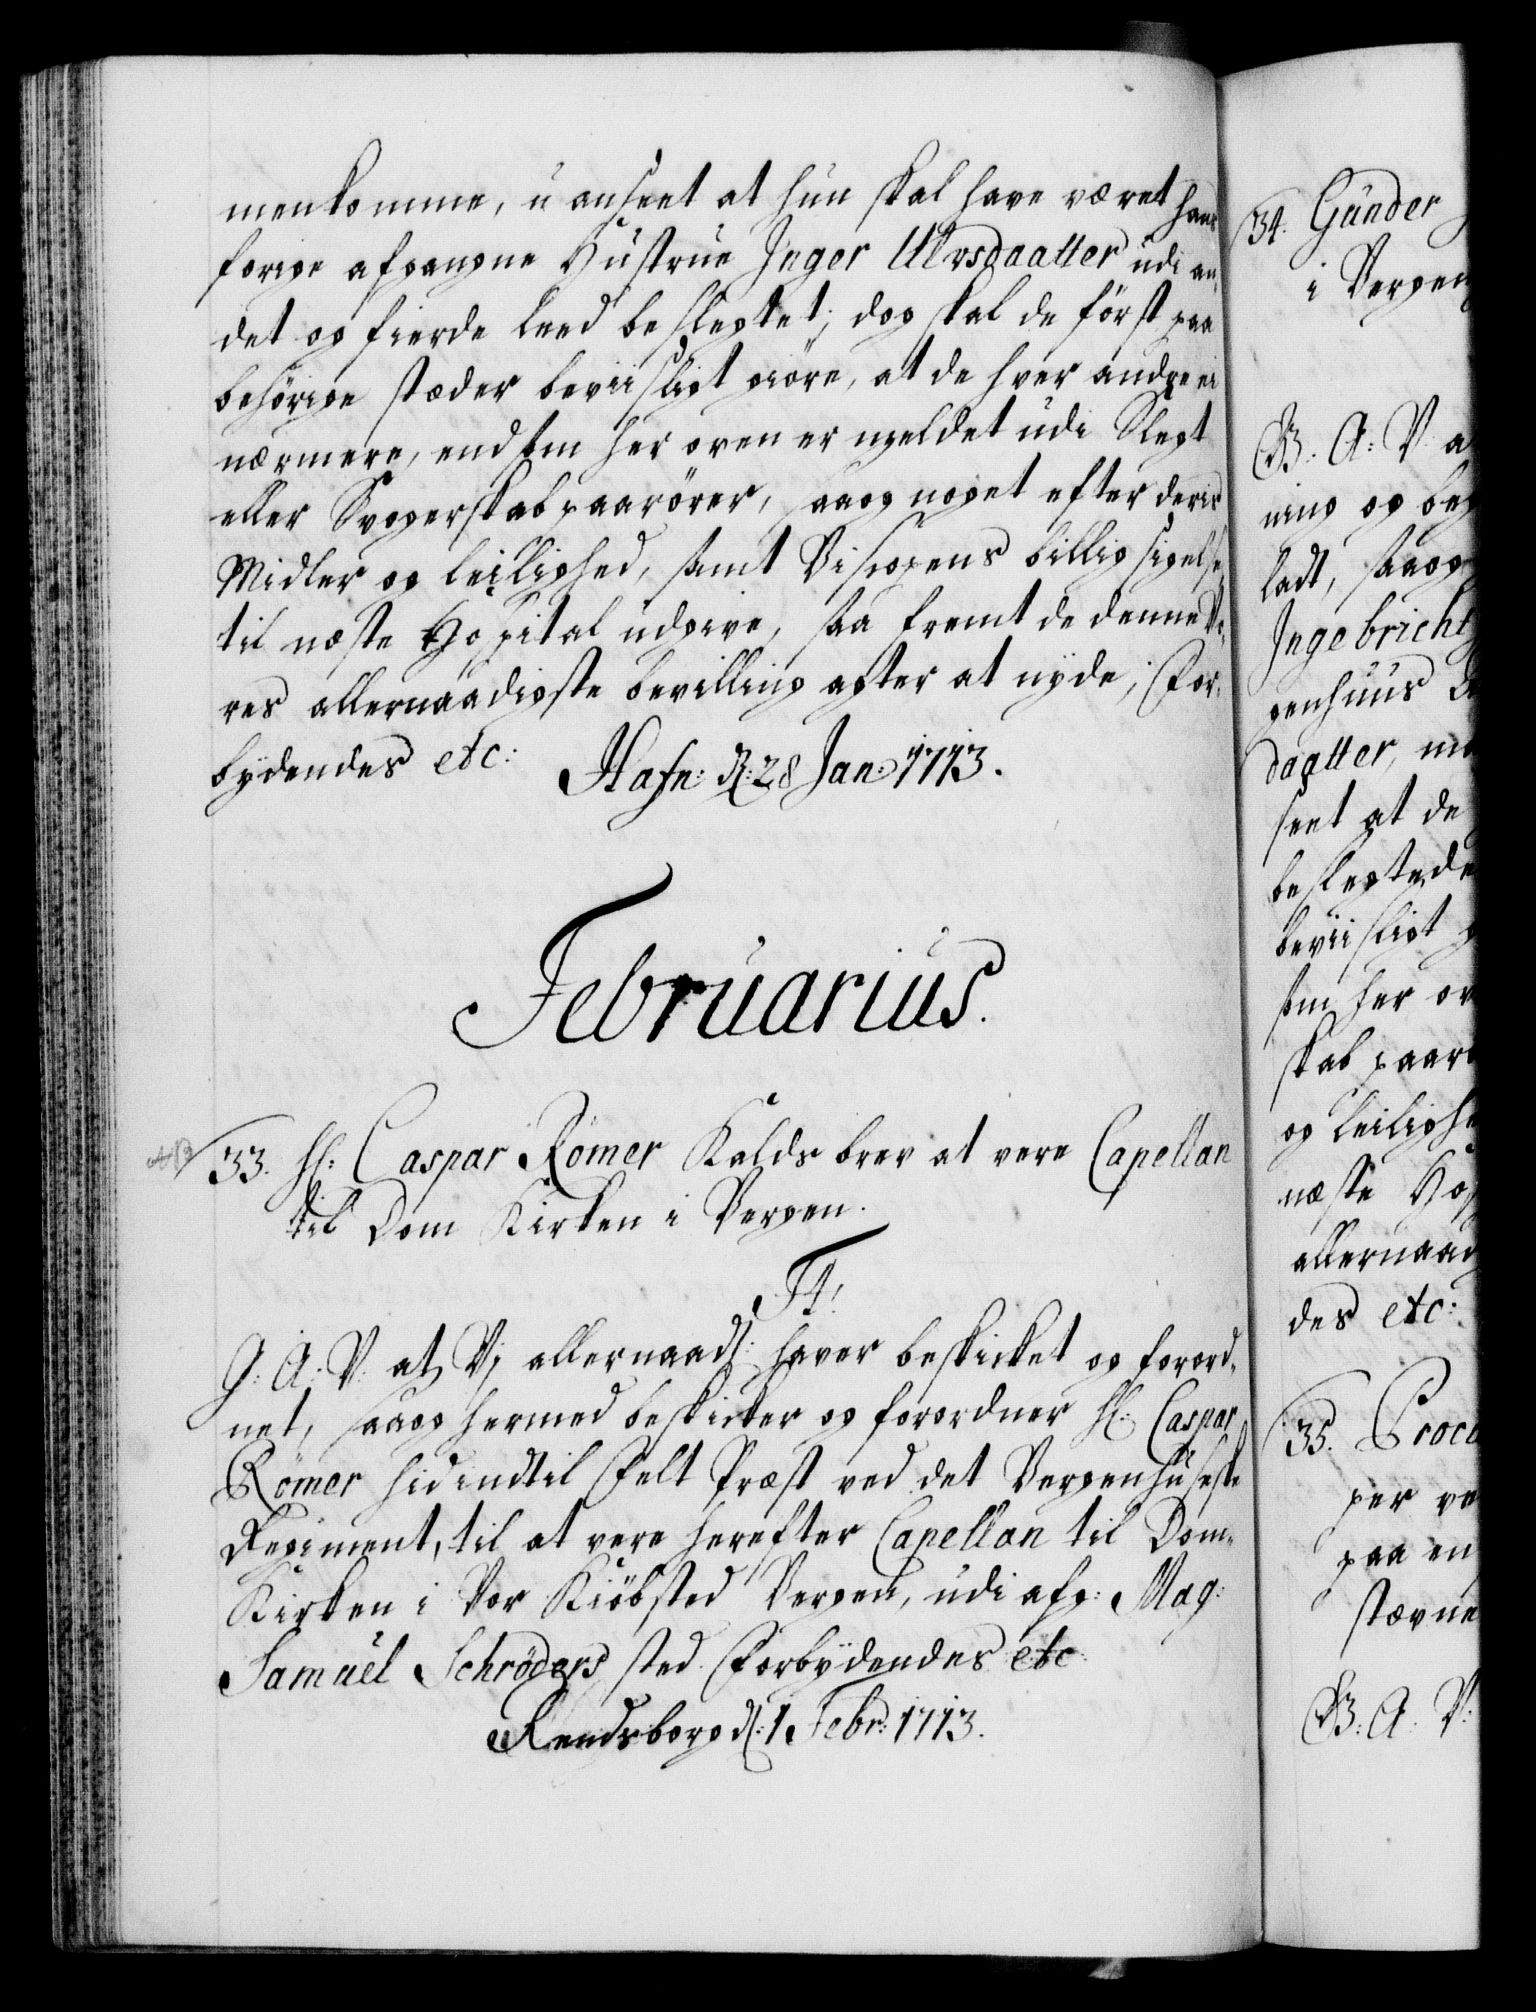 menkomme, uanseet at hun skal have været hans
forige afgangne Hustrue Inger Ulvsdaatter udi an¬
det og fierde leed beslegtet; dog skal de först paa
behörige stæder beviisligt giöre, at de hver andre ei
nærmere, end som her oven er meldet udi Slegt
eller Svogerskab paarörer, saa og noget efter deris
Midler og leilighed, samt Biscopens billig sigelse
til næste Hospital udgive, saa fremt de denne Vo¬
res allernaadigste bevilling agter at nyde; For¬
bydendes etc: Hafn: d: 28 Jan: 1713.
Februarius.
33. Hr: Caspar Römer Kalds brev at være Capellan
til Dom Kirken i Bergen.
F4!
G: A: V: at Vj allernaadt: haver beskicket og forord¬
net, saa og hermed beskicker og forordner Hr: Caspar
Römer hid indtil Felt Præst ved det Bergenhuseske
Regiment, til at være herefter Capellan til Dom¬
Kirken i Vor Kiöbsted Bergen, udi afg: Mag:
Samuel Schröders sted. Forbydendes etc
Rendsborg d: 1 Febr: 1713.
34. Gunder
i Bergen
G: A: V: a
ning og beg
ladt, saa og
Ingebricht
genhuus
daatter, m
seet at de
beslegtede
beviisligt g
som her ov
skab paarö
og leilighe
næste Hos
allernaad
des etc:
35. Proc
ger ve
paa en
stævne
G: A: V: